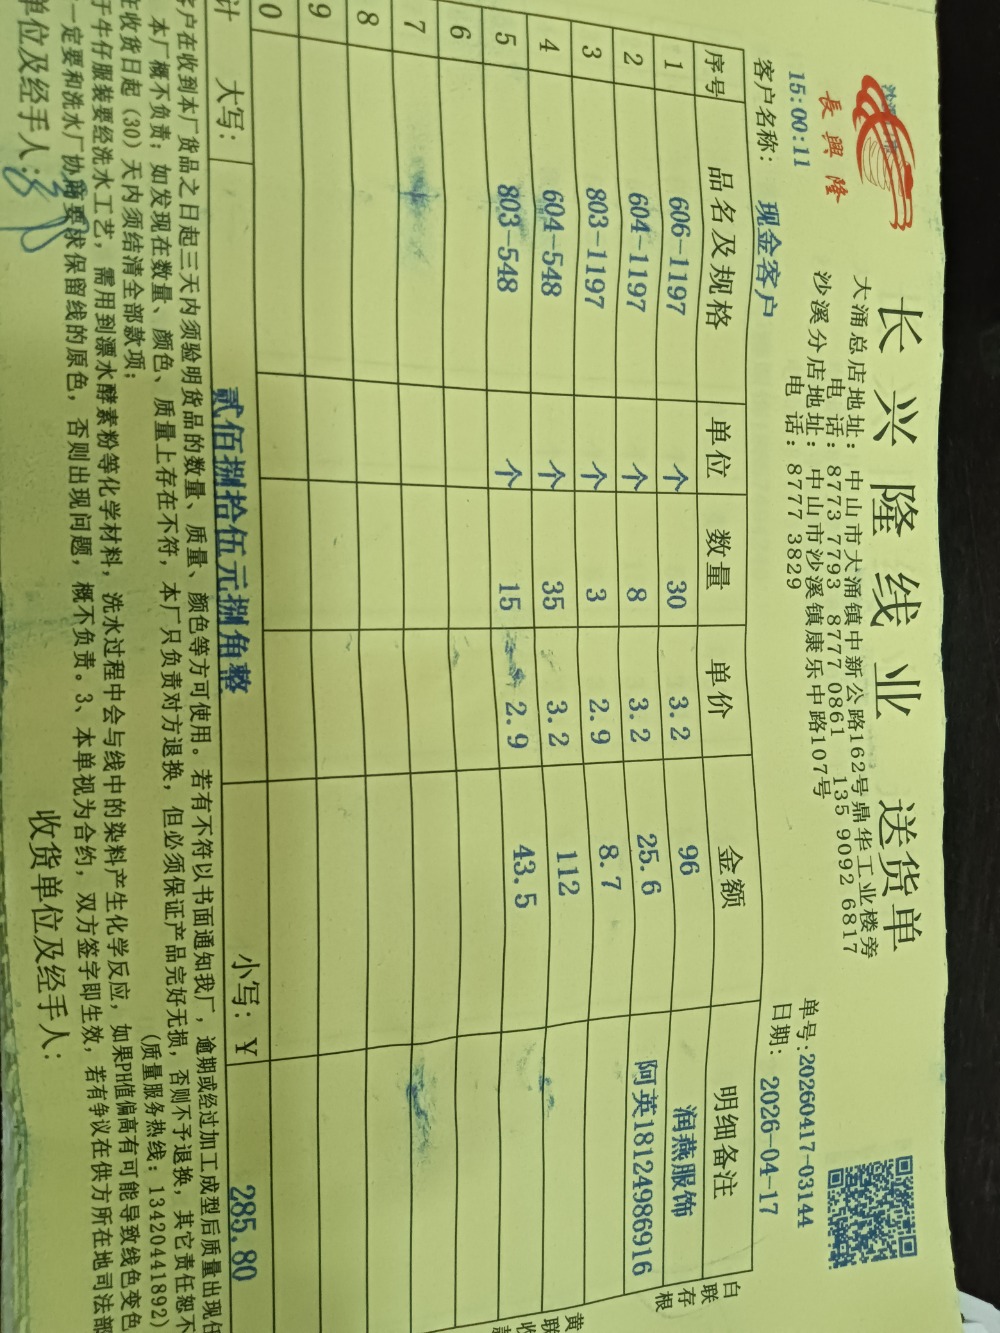 長興隆
长兴隆线业 送货单
大涌总店地址: 中山市大涌镇中新公路162号鼎华工业楼旁
电 话: 8773 7793 8777 0861 135 9092 6817
沙溪分店地址: 中山市沙溪镇康乐中路107号
电 话: 8777 3829
15:00:11
单号:20260417-03144
客户名称: 现金客户
日期: 2026-04-17
序号 品名及规格 单位 数量 单价 金额 明细备注
1 606-1197 个 30 3.2 96 润燕服饰
2 604-1197 个 8 3.2 25.6 阿英18124986916
3 803-1197 个 3 2.9 8.7
4 604-548 个 35 3.2 112
5 803-548 个 15 2.9 43.5
6
7
8
9
0
计 大写: 贰佰捌拾伍元捌角整 小写: ¥ 285.80
客户在收到本厂货品之日起三天内须验明货品的数量、质量、颜色等方可使用。若有不符以书面通知我厂,逾期或经过加工成型后质量出现任
本厂概不负责;如发现在数量、颜色、质量上存在不符,本厂只负责对方退换,但必须保证产品完好无损,否则不予退换,其它责任恕不
在收货日起(30)天内须结清全部款项; (质量服务热线: 13420441892)
于牛仔服装要经洗水工艺,需用到漂水酵素粉等化学材料,洗水过程中会与线中的染料产生化学反应,如果PH值偏高有可能导致线色变色
一定要和洗水厂协商要求保留线的原色,否则出现问题,概不负责。3、本单视为合约,双方签字即生效,若有争议在供方所在地司法部
单位及经手人: 收货单位及经手人:
白联存根
黄联收